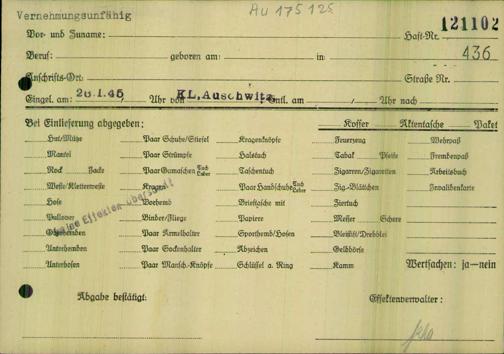 Vernehmungsunfähig
AU 175 125
121102
Vor- und Zuname: Haft-Nr.
436
Beruf: geboren am: in:
Anschrifts-Ort: Straße Nr.
Eingel. am: 26.1.45 Uhr von KL. Auschwitz Entl. am: Uhr nach
Bei Einlieferung abgegeben: Koffer Aktentasche Paket
Hut/Mütze Paar Schuhe/Stiefel Kragenknöpfe Feuerzeug Wehrpaß
Mantel Paar Strümpfe Halstuch Tabak Pfeife Fremdenpaß
Rock Jacke Paar Gamaschen Tuch Leder Taschentuch Zigarren/Zigaretten Arbeitsbuch
Weste/Kletterweste Kragen Paar Handschuhe Tuch Leder Zig-Blättchen Invalidenkarte
Hose Vorhemd Brieftasche mit Ziertuch
Pullover Binder/Fliege Papiere Messer Schere
Oberhemden Paar Ärmelhalter Sporthemd/Hosen Bleistift/Drehblei
Unterhemden Paar Sockenhalter Abzeichen Geldbörse
Unterhosen Paar Mansch.-Knöpfe Schlüssel a. Ring Kamm Wertsachen: ja—nein
keine Effekten übersandt
Abgabe bestätigt: Effektenverwalter: